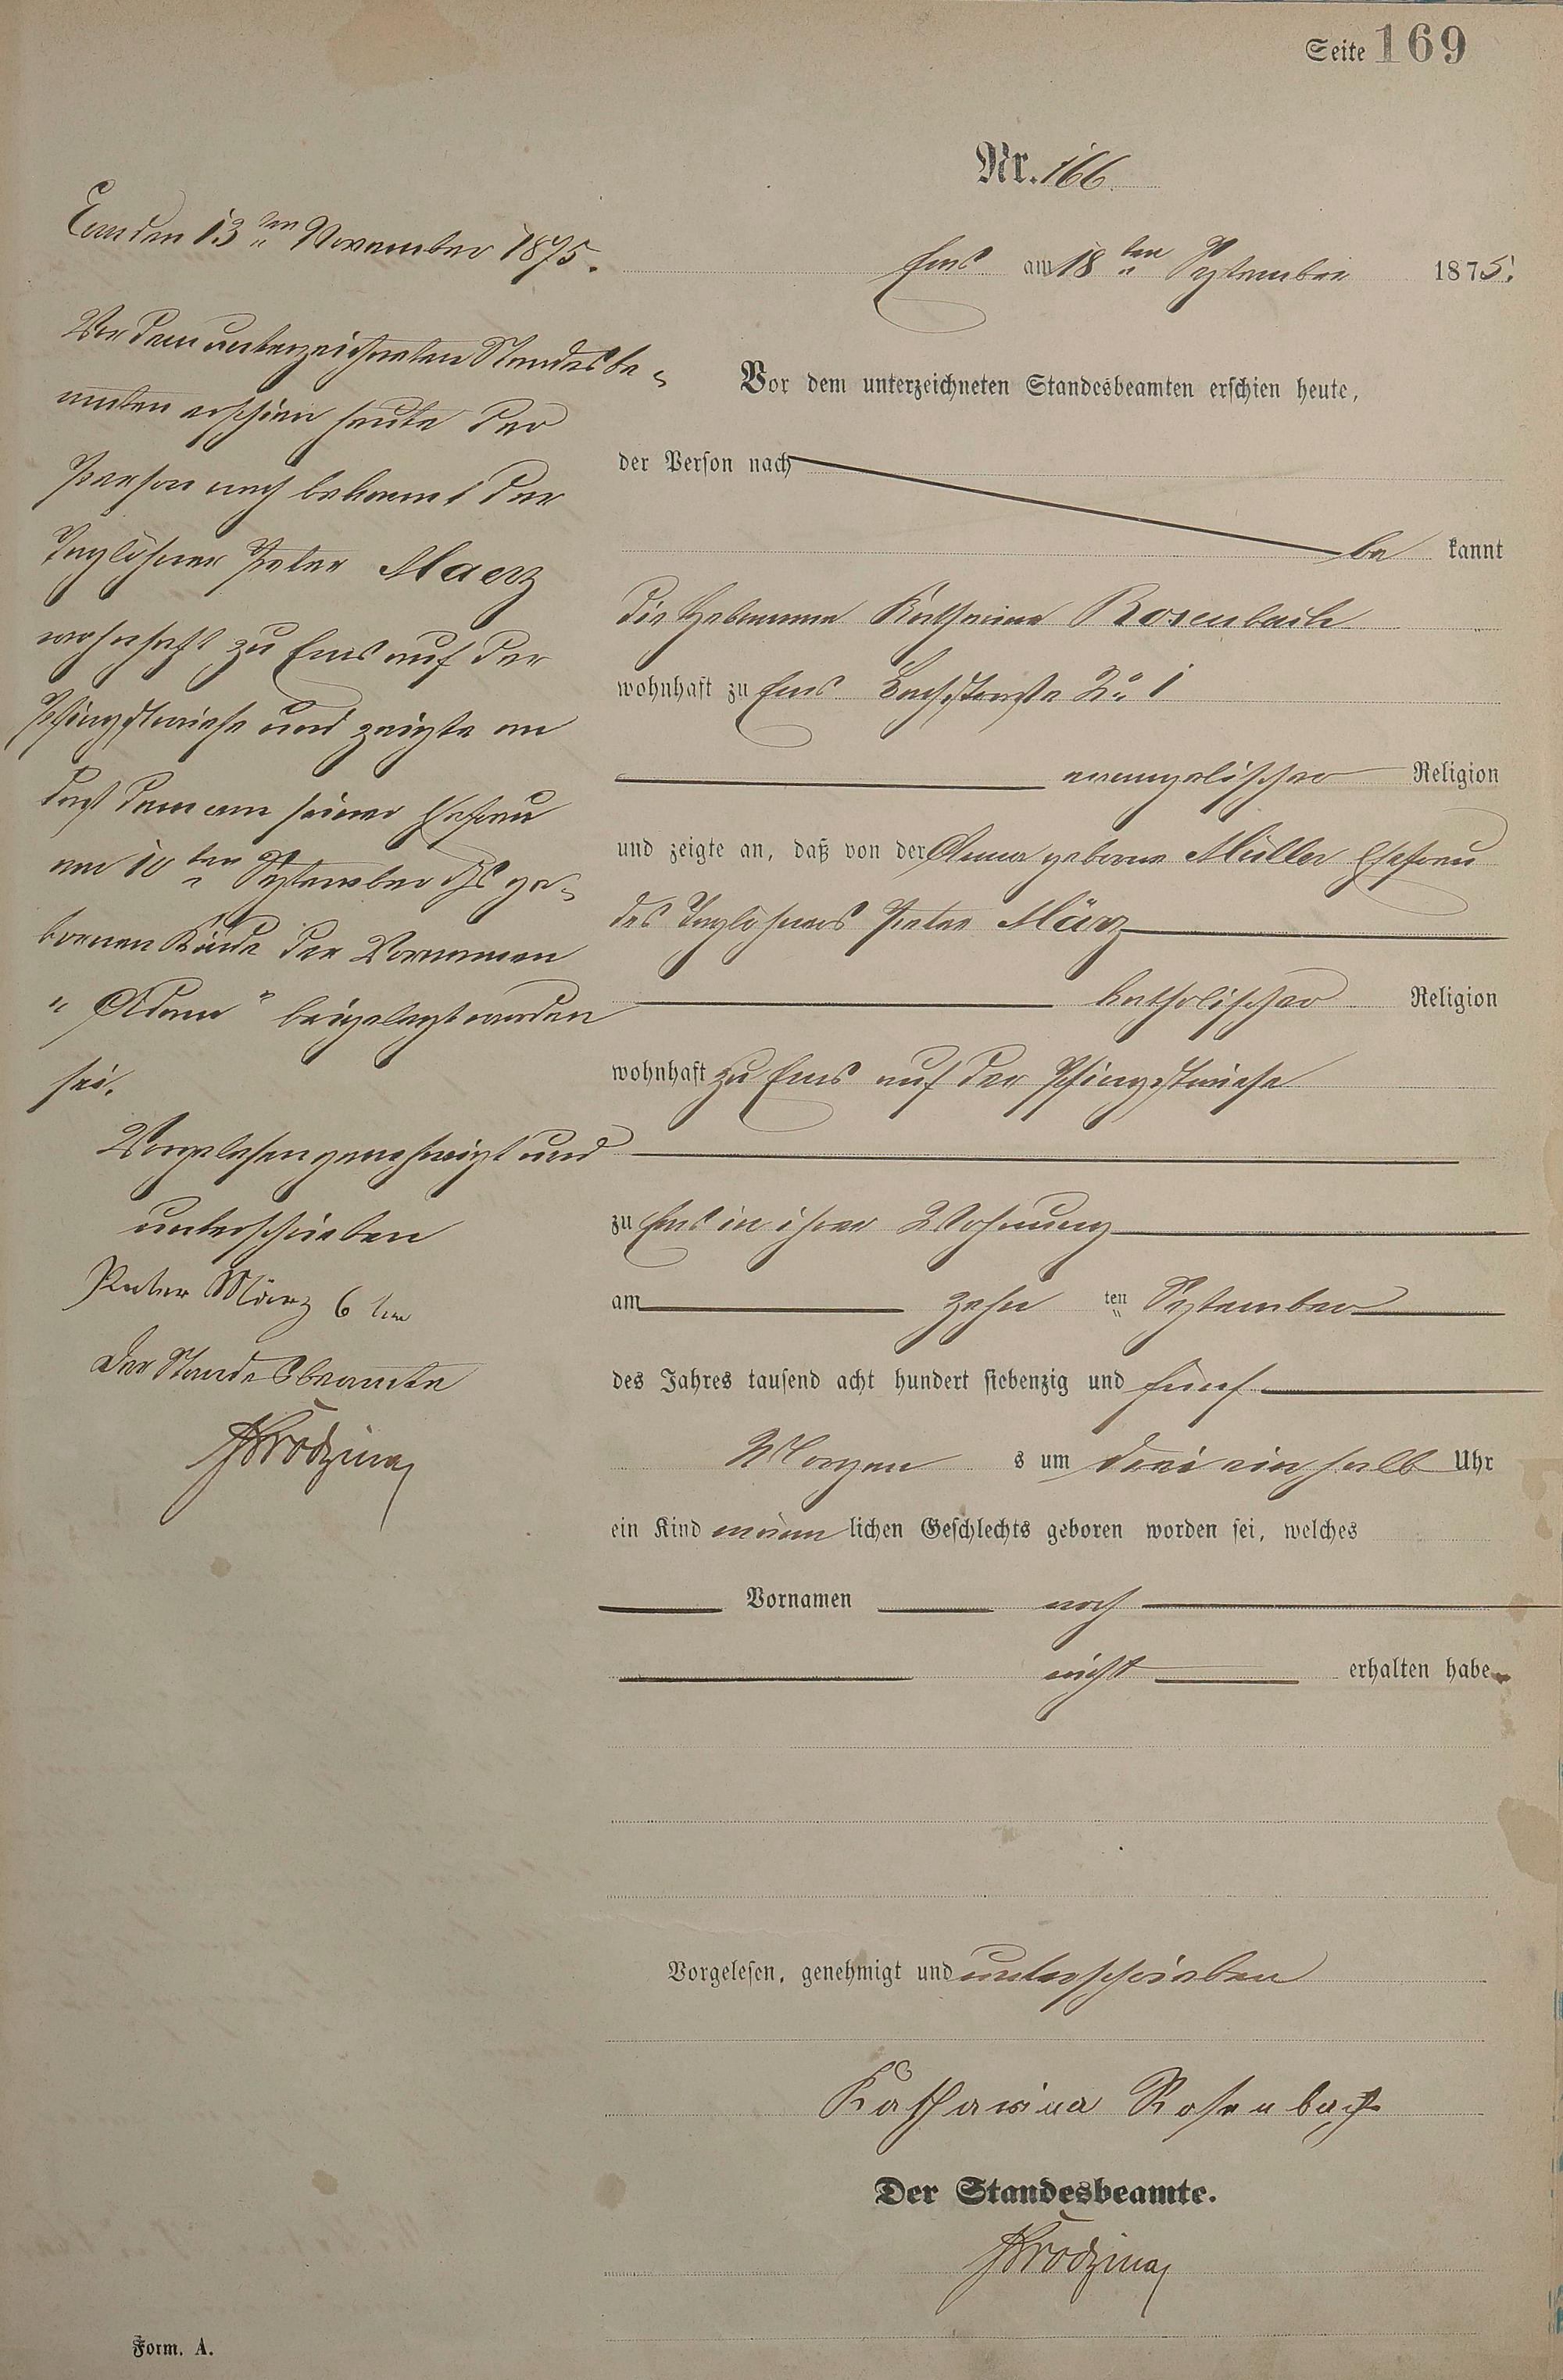 Seite 169
Nr. 166.
Ems am 18ten September 1875.
Vor dem unterzeichneten Standesbeamten erschien heute,
der Person nach
be kannt
die Hebamme Katharina Rosenbach
wohnhaft zu Ems Bachstraße No 1
evangelischer Religion
und zeigte an, daß von der Anna geborne Müller Ehefrau
des Taglöhners Peter März
katholischer Religion
wohnhaft zu Ems auf der Pfingstwiese
zu Ems in ihrer Wohnung
am zehn ten September
des Jahres tausend acht hundert siebenzig und fünf
Morgen s um drei ein halb Uhr
ein Kind männ lichen Geschlechts geboren worden sei, welches
Vornamen noch
nicht erhalten habe
Vorgelesen, genehmigt und unterschrieben
Katharina Rosenbach
Der Standesbeamte.
den 13ten November 1875.
Vor dem unterzeichneten Standesbe-
amten erschien heute der
Person nach bekannt der
Taglöhner Peter Maerz
wohnhaft zu Ems auf der
Pfingstwiese und zeigte an
daß dem von seiner Ehefrau
am 10ten September ds ge-
bornen Kinde der Vornamen
"Adam" beigelegt worden
sei.
Vorgelesen genehmigt und
unterschrieben
Peter März 6ter
Der Standesbeamte
Form. A.